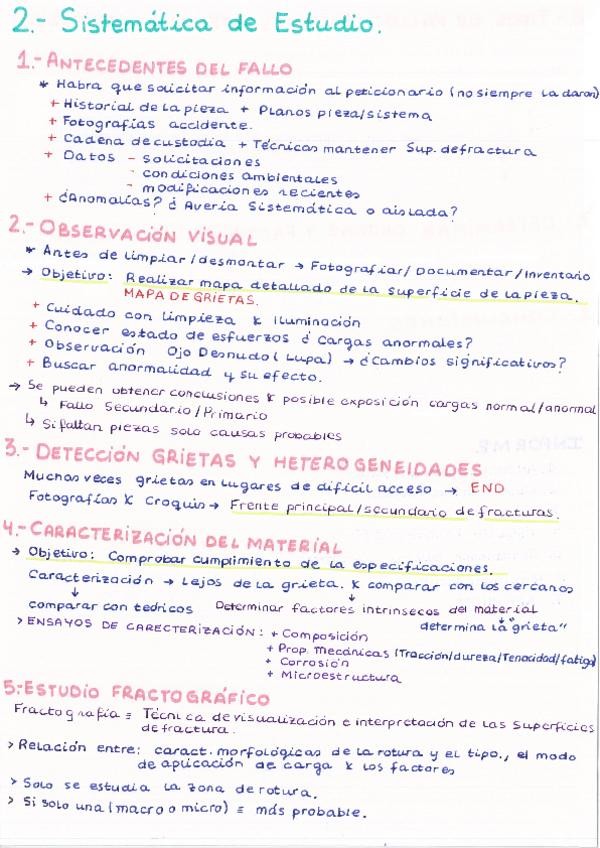 2.- Sistemática de Estudio.
1.- ANTECEDENTES DEL FALLO
* Habra que solicitar información al peticionario (no siempre la daran)
+ Historial de la pieza + Planos pieza/sistema
+ Fotografías accidente.
+ Cadena de custodia + Técnicas mantener Sup. defractura
+ Datos - solicitaciones
- condiciones ambientales
- modificaciones recientes
+ ¿Anomalías? ¿ Avería Sistemática o aislada?
2.- OBSERVACIÓN VISUAL
* Antes de limpiar/desmontar → Fotografiar/Documentar/Inventario
→ Objetivo: Realizar mapa detallado de la superficie de la pieza.
MAPA DE GRIETAS.
+ Cuidado con limpieza & Iluminación
+ Conocer estado de esfuerzos ¿ Cargas anormales?
+ Observación Ojo Desnudo (Lupa) → ¿Cambios significativos?
+ Buscar anormalidad y su efecto.
→ Se pueden obtener conclusiones & posible exposición cargas normal/anormal
↳ Fallo Secundario/Primario
↳ Si faltan piezas solo causas probables
3.- DETECCIÓN GRIETAS Y HETEROGENEIDADES
Muchas veces grietas en lugares de dificil acceso → END
Fotografías & Croquis → Frente principal/secundario de fracturas.
4.- CARACTERIZACIÓN DEL MATERIAL
→ Objetivo: Comprobar cumplimiento de la especificaciones.
Caracterización → Lejos de la grieta. & comparar con los cercanos
↓ ↓
comparar con teóricos Determinar factores intrinsecos del material
↓
determina la "grieta"
> ENSAYOS DE CARECTERIZACIÓN: + Composición
+ Prop. Mecánicas (Tracción/dureza/Tenacidad/fatiga)
+ Corrosión
+ Microestructura
5.- ESTUDIO FRACTOGRÁFICO
Fractografía ≡ Técnica de visualización e interpretación de las superficies
de fractura.
> Relación entre: caract. morfológicas de la rotura y el tipo., el modo
de aplicación de carga & los factores
> Solo se estudia la zona de rotura.
> Si solo una (macro o micro) ≡ más probable.